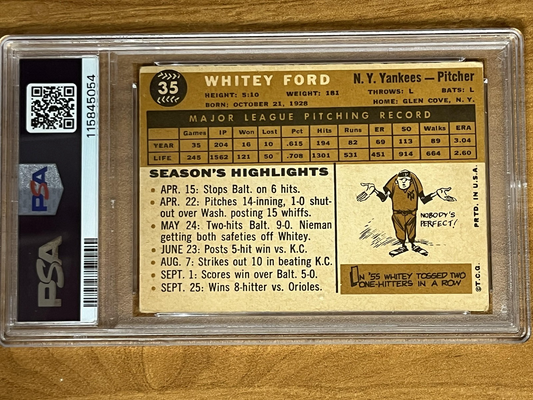 115845054
PSA
PSA
35
WHITEY FORD
N. Y. Yankees — Pitcher
HEIGHT: 5:10 WEIGHT: 181 THROWS: L BATS: L
BORN: OCTOBER 21, 1928 HOME: GLEN COVE, N. Y.
MAJOR LEAGUE PITCHING RECORD
Games IP Won Lost Pct. Hits Runs ER SO Walks ERA
YEAR 35 204 16 10 .615 194 82 69 113 89 3.04
LIFE 245 1562 121 50 .708 1301 531 451 914 664 2.60
SEASON'S HIGHLIGHTS
• APR. 15: Stops Balt. on 6 hits.
• APR. 22: Pitches 14-inning, 1-0 shut-
out over Wash. posting 15 whiffs.
• MAY 24: Two-hits Balt. 9-0. Nieman
getting both safeties off Whitey.
• JUNE 23: Posts 5-hit win vs. K.C.
• AUG. 7: Strikes out 10 in beating K.C.
• SEPT. 1: Scores win over Balt. 5-0.
• SEPT. 25: Wins 8-hitter vs. Orioles.
NOBODY'S
PERFECT!
IN '55 WHITEY TOGGED TWO
ONE-HITTERS IN A ROW
©T.C.G. PRTD. IN U.S.A.